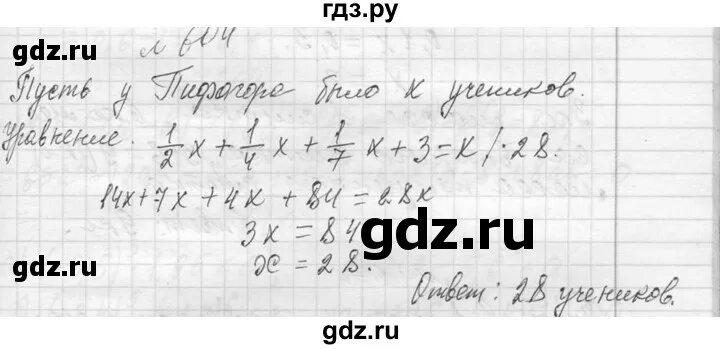 гдз.ру
№ 604
gdz.ru gdz.ru
Пусть у Пифагора было x учеников.
Уравнение. 1/2 x + 1/4 x + 1/7 x + 3 = x / · 28.
14x + 7x + 4x + 84 = 28x
3x = 84
gdz.ru
x = 28.
Ответ: 28 учеников.
gdz.ru gdz.ru